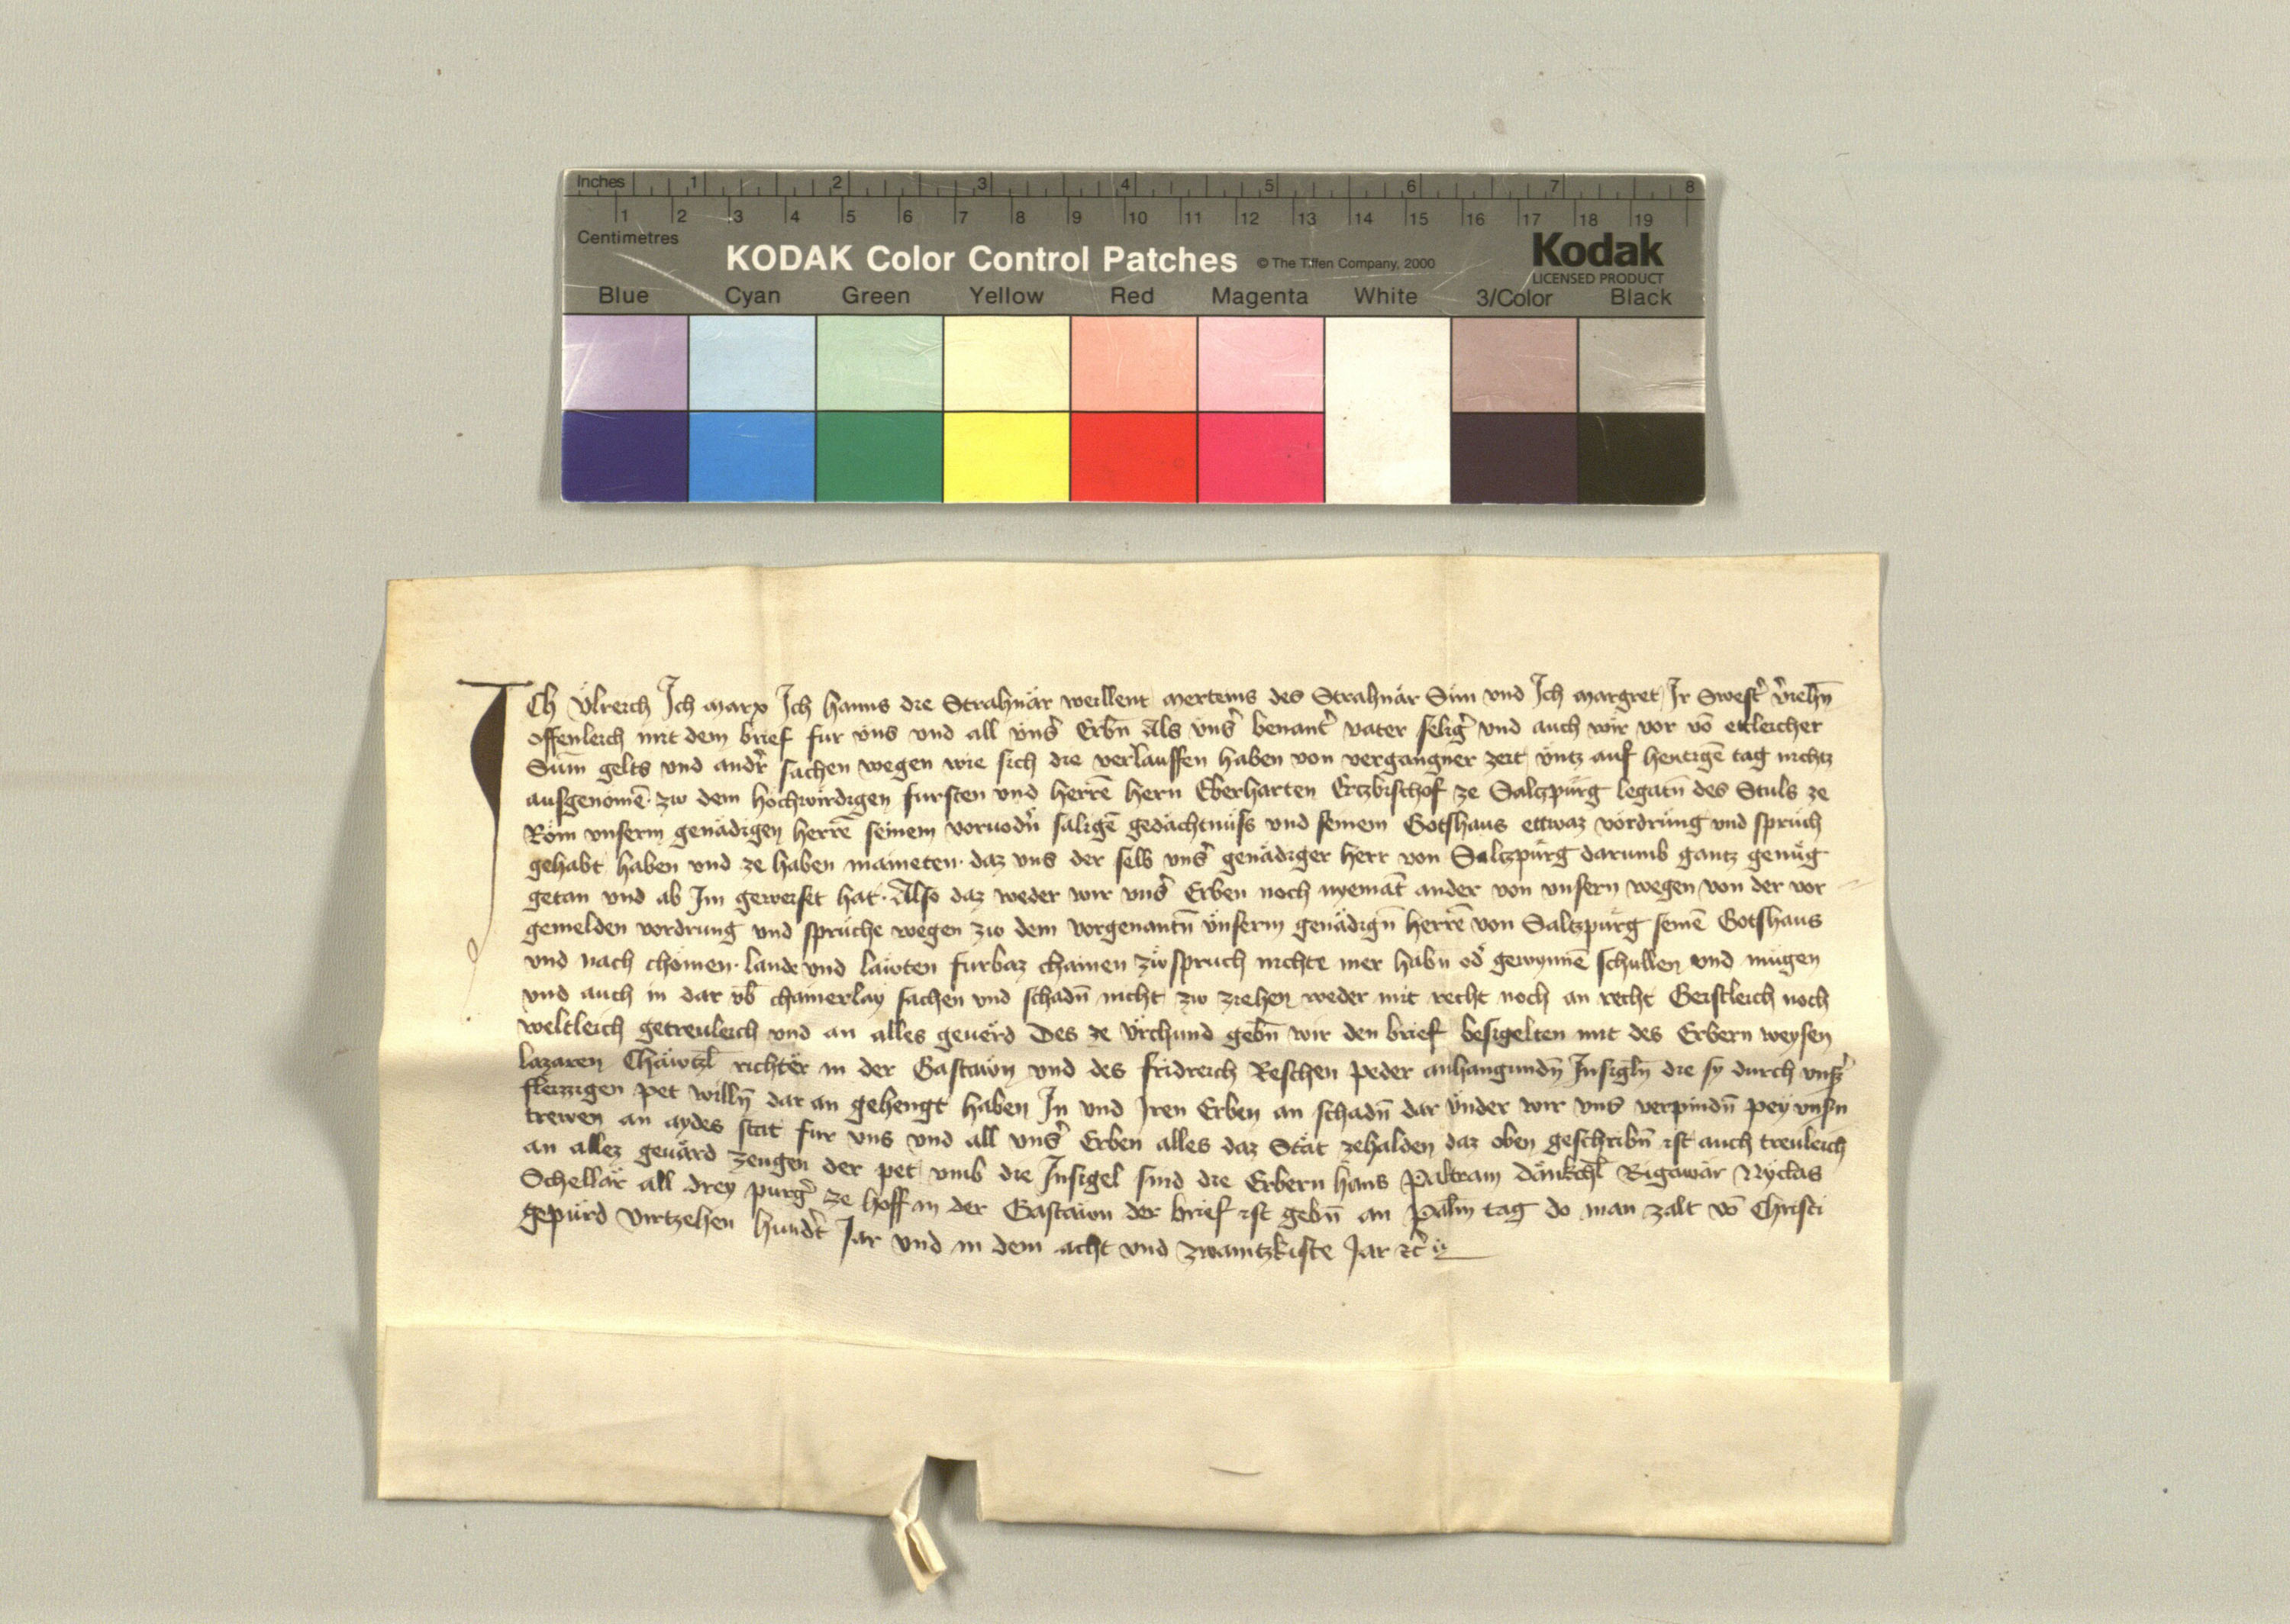 Inches 1 2 3 4 5 6 7 8
1 2 3 4 5 6 7 8 9 10 11 12 13 14 15 16 17 18 19
Centimetres
KODAK Color Control Patches © The Tiffen Company, 2000 Kodak
LICENSED PRODUCT
Blue Cyan Green Yellow Red Magenta White 3/Color Black
Ich Ulreich Ich marx Ich hanns die Strahnär weillent mertems des Strahnär Sün vnd Ich margret Ir Swest̉ v̉iehn̄
offenleich mit dem brief fur vns vnd all vns̉ Erbn̄ Als vns̉ benant̉ vater selig̉ vnd auch wir vor vō ettleicher
Sum̄ gelts vnd andr̉ sachen wegen wie sich die verlauffen haben von vergangner zeit vntz auf hewtigē tag nichtz
ausgenömē zw dem hochwirdigen fursten vnd herrē hern Eberharten Ertzbischof ze Saltzpürg legatn̄ des Stuls ze
Röm vnserm genädigen herrē seinem voruodn̉ säligē gedächtnüss vnd seinem Gotshaus ettwaz vördrüng vnd sprüch
gehabt haben vnd ze haben maineten daz vns der selb vns̉ genädiger herr von Saltzpürg darumb gantz genüg
getan vnd ab Im geweiset hat Also daz weder wir vns̉ Erben noch nyemāt ander von vnsern wegen von der vor
gemelden vordrung vnd sprüche wegen zw dem vorgenantn̄ vnserm genädign̄ herrē von Saltzpürg seinē Gotshaus
vnd nach chömen lande vnd läwten furbaz chainen zwspruch nichte mer habn̄ od̉ gewynnē schullen vnd mügen
vnd auch in dar vb̉ chainerlay sachen vnd schadn̄ nicht zw ziehen weder mit recht noch an recht Geistleich noch
weltleich getreuleich vnd an alles geuerd Des ze vrchund gebn̄ wir den brief besigelten mit des Erbern weysen
lazaren Chäwtzl richter in der Gastawn vnd des fridreich Reschen peder anhangundn̄ Insigln̄ die sy durch vns̉
fleizzigen pet willn̄ dar an gehengt haben In vnd Iren Erben an schadn̄ dar vnder wir vns verpindn̄ pey vnsn̉
trewen an aydes stat fur vns vnd all vns̉ Erben alles daz Stät zehalden daz oben geschribn̄ ist auch treuleich
an allez geuärd zeugen der pet vmb die Insigel sind die Erbern hans Paltram Dänkchl Rigawär Nyclas
Schellär all drey purg̉ ze hoff in der Gastawn der brief ist gebn̄ an Palm tag do man zalt vō Christi
gepürd virtzehen hundt̉ Jar vnd in dem acht vnd zwaintzkiste Jar etc̉